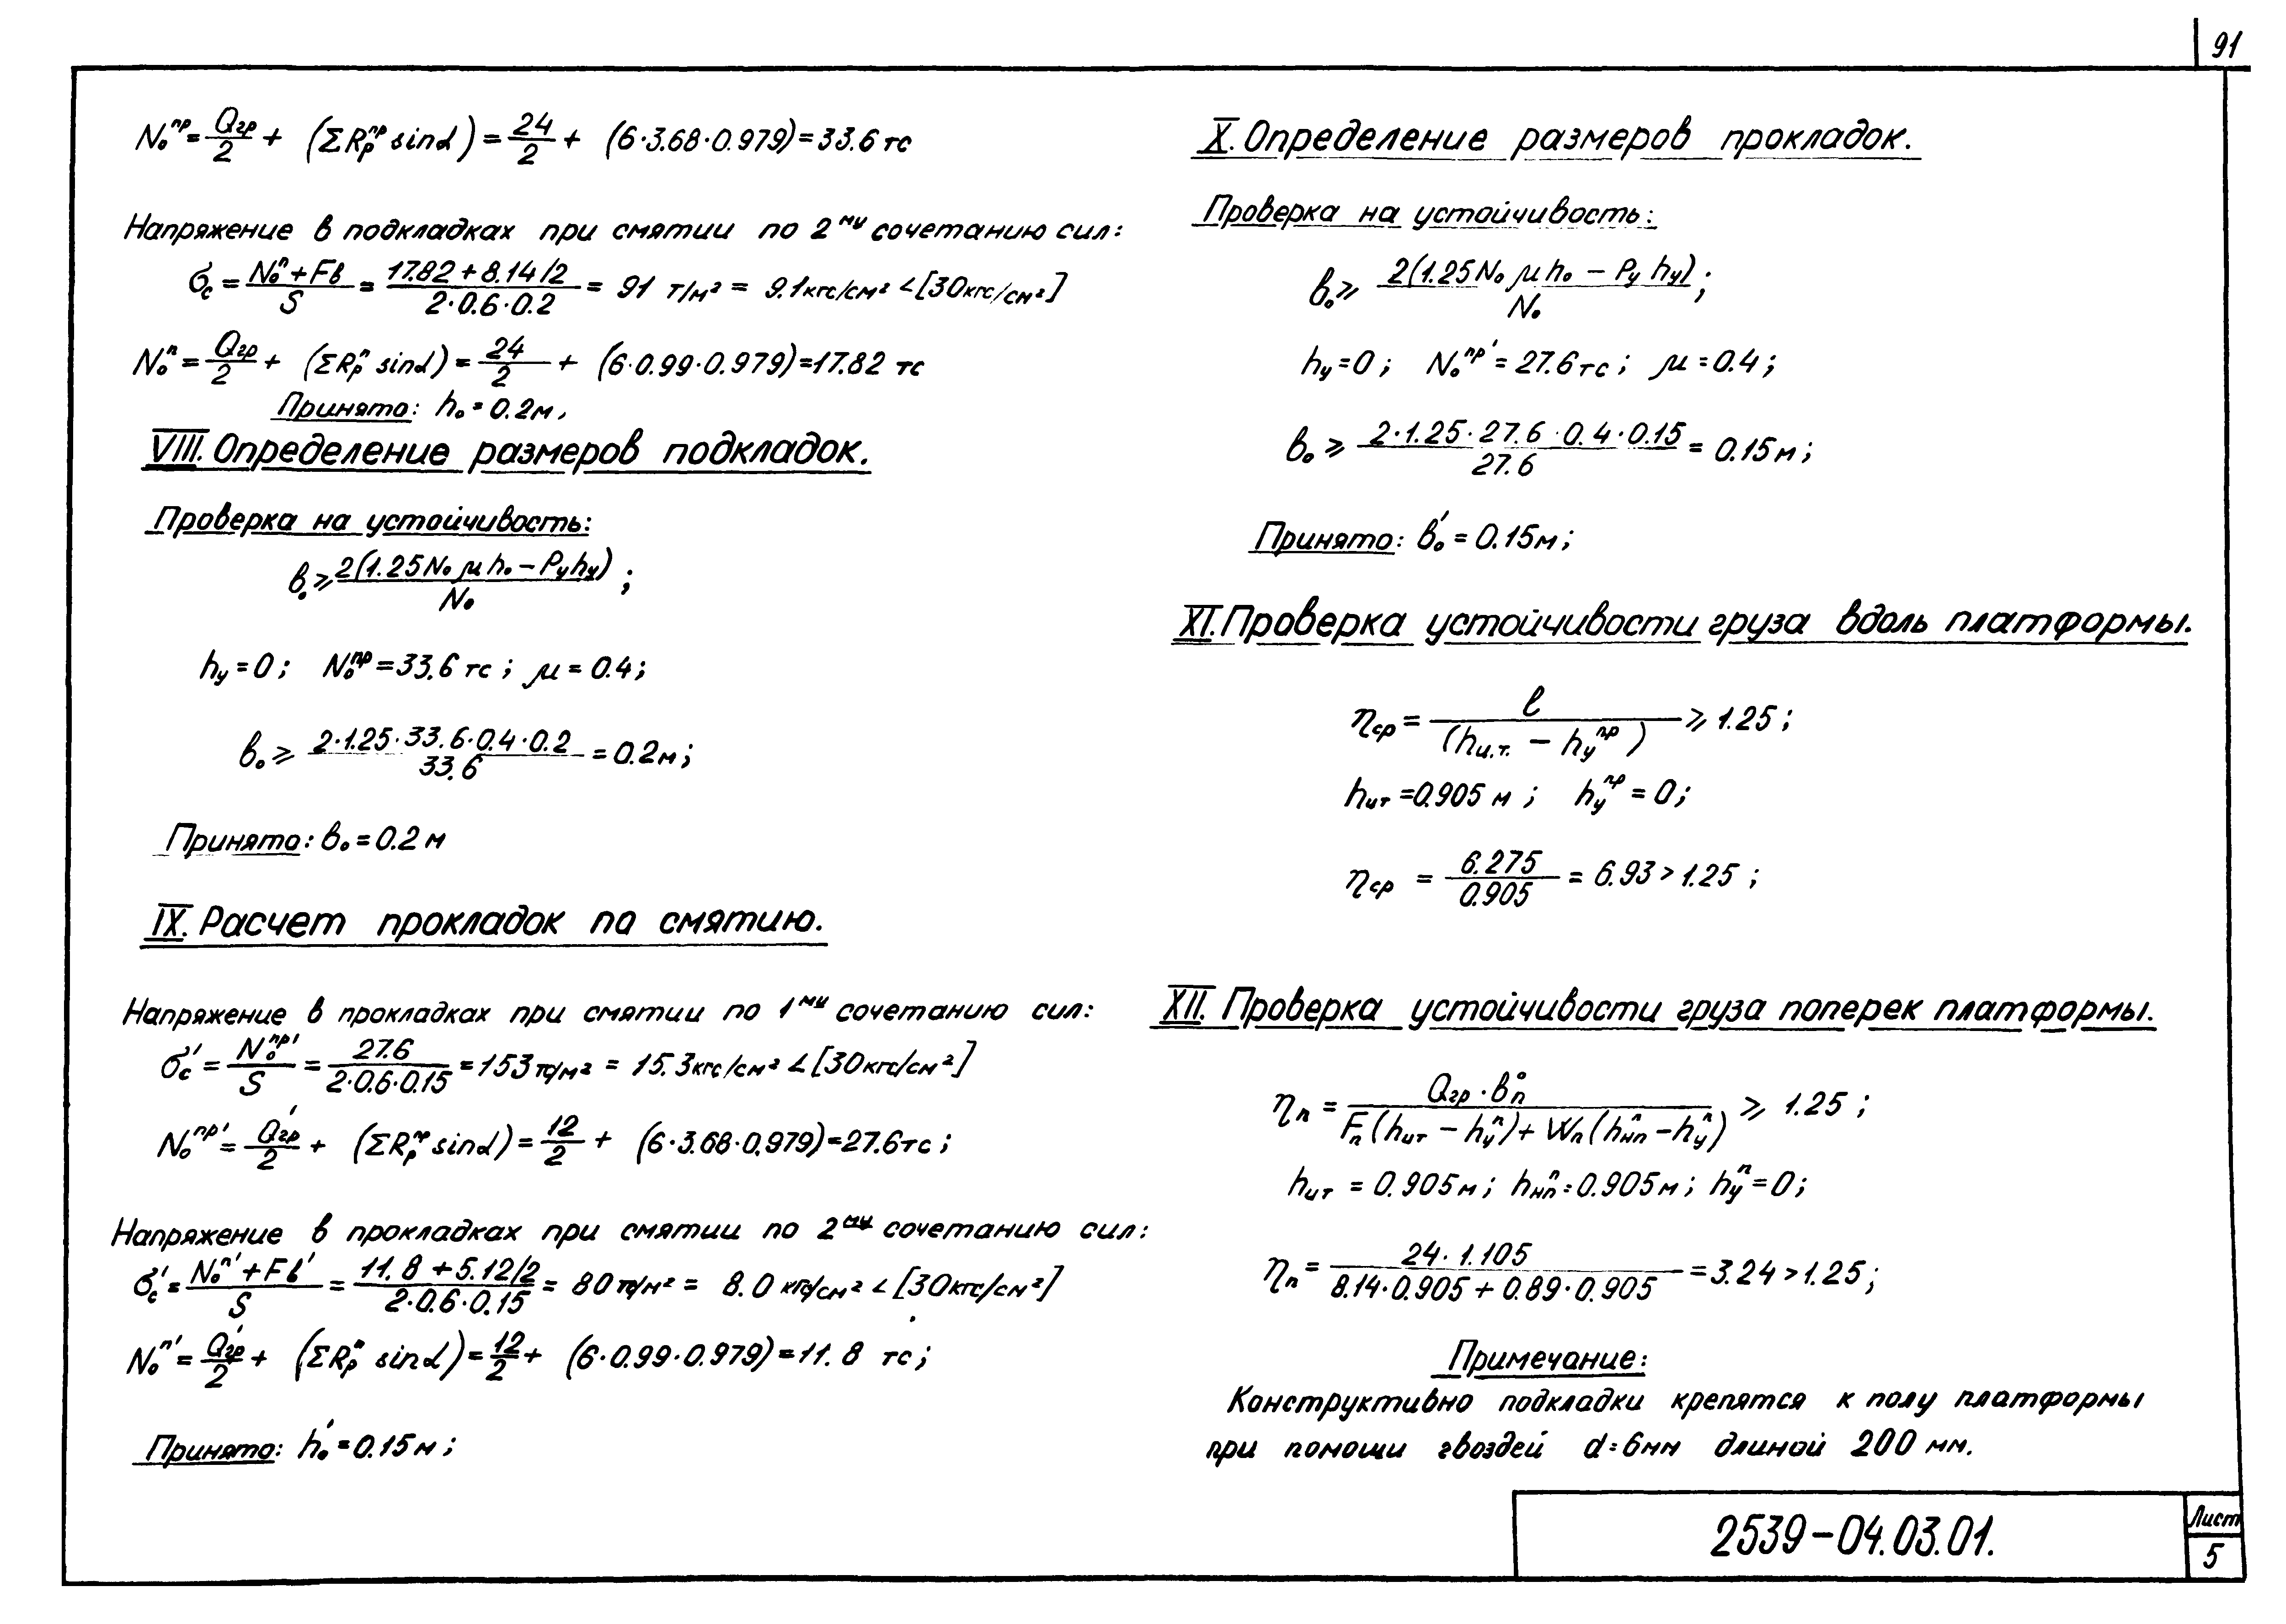 91
N₀ᵖᴾ = Qгр/2 + (ΣRрᵖᴾ sinα) = 24/2 + (6·3.68·0.979) = 33.6 тс
Напряжение в подкладках при смятии по 2ми сочетанию сил:
σc = (N₀ⁿ + Fв)/S = (17.82 + 8.14/2)/(2·0.6·0.2) = 91 т/м² = 9.1 кгс/см² < [30 кгс/см²]
N₀ⁿ = Qгр/2 + (ΣRрⁿ sinα) = 24/2 + (6·0.99·0.979) = 17.82 тс
Принято: h₀ = 0.2м,
VIII. Определение размеров подкладок.
Проверка на устойчивость:
в₀ ⩾ 2(1.25 N₀ μ h₀ – Pу hу)/N₀ ;
hу = 0; N₀ᵖᴾ = 33.6 тс; μ = 0.4;
в₀ ⩾ 2·1.25·33.6·0.4·0.2/33.6 = 0.2м;
Принято: в₀ = 0.2 м
IX. Расчет прокладок по смятию.
Напряжение в прокладках при смятии по 1ми сочетанию сил:
σc′ = N₀ᵖᴾ′/S = 27.6/(2·0.6·0.15) = 153 тс/м² = 15.3 кгс/см² < [30 кгс/см²]
N₀ᵖᴾ′ = Qгр′/2 + (ΣRрᵖᴾ sinα) = 12/2 + (6·3.68·0.979) = 27.6 тс;
Напряжение в прокладках при смятии по 2ми сочетанию сил:
σc′ = (N₀ⁿ′ + Fв′)/S = (11.8 + 5.12/2)/(2·0.6·0.15) = 80 тс/м² = 8.0 кгс/см² < [30 кгс/см²]
N₀ⁿ′ = Qгр′/2 + (ΣRрⁿ sinα) = 12/2 + (6·0.99·0.979) = 11.8 тс;
Принято: h₀′ = 0.15м;
X. Определение размеров прокладок.
Проверка на устойчивость:
в₀ ⩾ 2(1.25 N₀ μ h₀ – Pу hу)/N₀ ;
hу = 0; N₀ᵖᴾ′ = 27.6 тс; μ = 0.4;
в₀ ⩾ 2·1.25·27.6·0.4·0.15/27.6 = 0.15м;
Принято: в₀′ = 0.15м;
XI. Проверка устойчивости груза вдоль платформы.
ηср = ℓ/(hц.т. – hуᵖᴾ) ⩾ 1.25;
hцт = 0.905 м; hуᵖᴾ = 0;
ηср = 6.275/0.905 = 6.93 > 1.25;
XII. Проверка устойчивости груза поперек платформы.
ηп = Qгр·вп°/(Fп(hцт – hуⁿ) + Wп(hнпⁿ – hуⁿ)) ⩾ 1.25;
hцт = 0.905м; hнпⁿ = 0.905м; hуⁿ = 0;
ηп = 24·1.105/(8.14·0.905 + 0.89·0.905) = 3.24 > 1.25;
Примечание:
Конструктивно подкладки крепятся к полу платформы
при помощи гвоздей d=6мм длиной 200 мм.
2539–04.03.01.
Лист
5